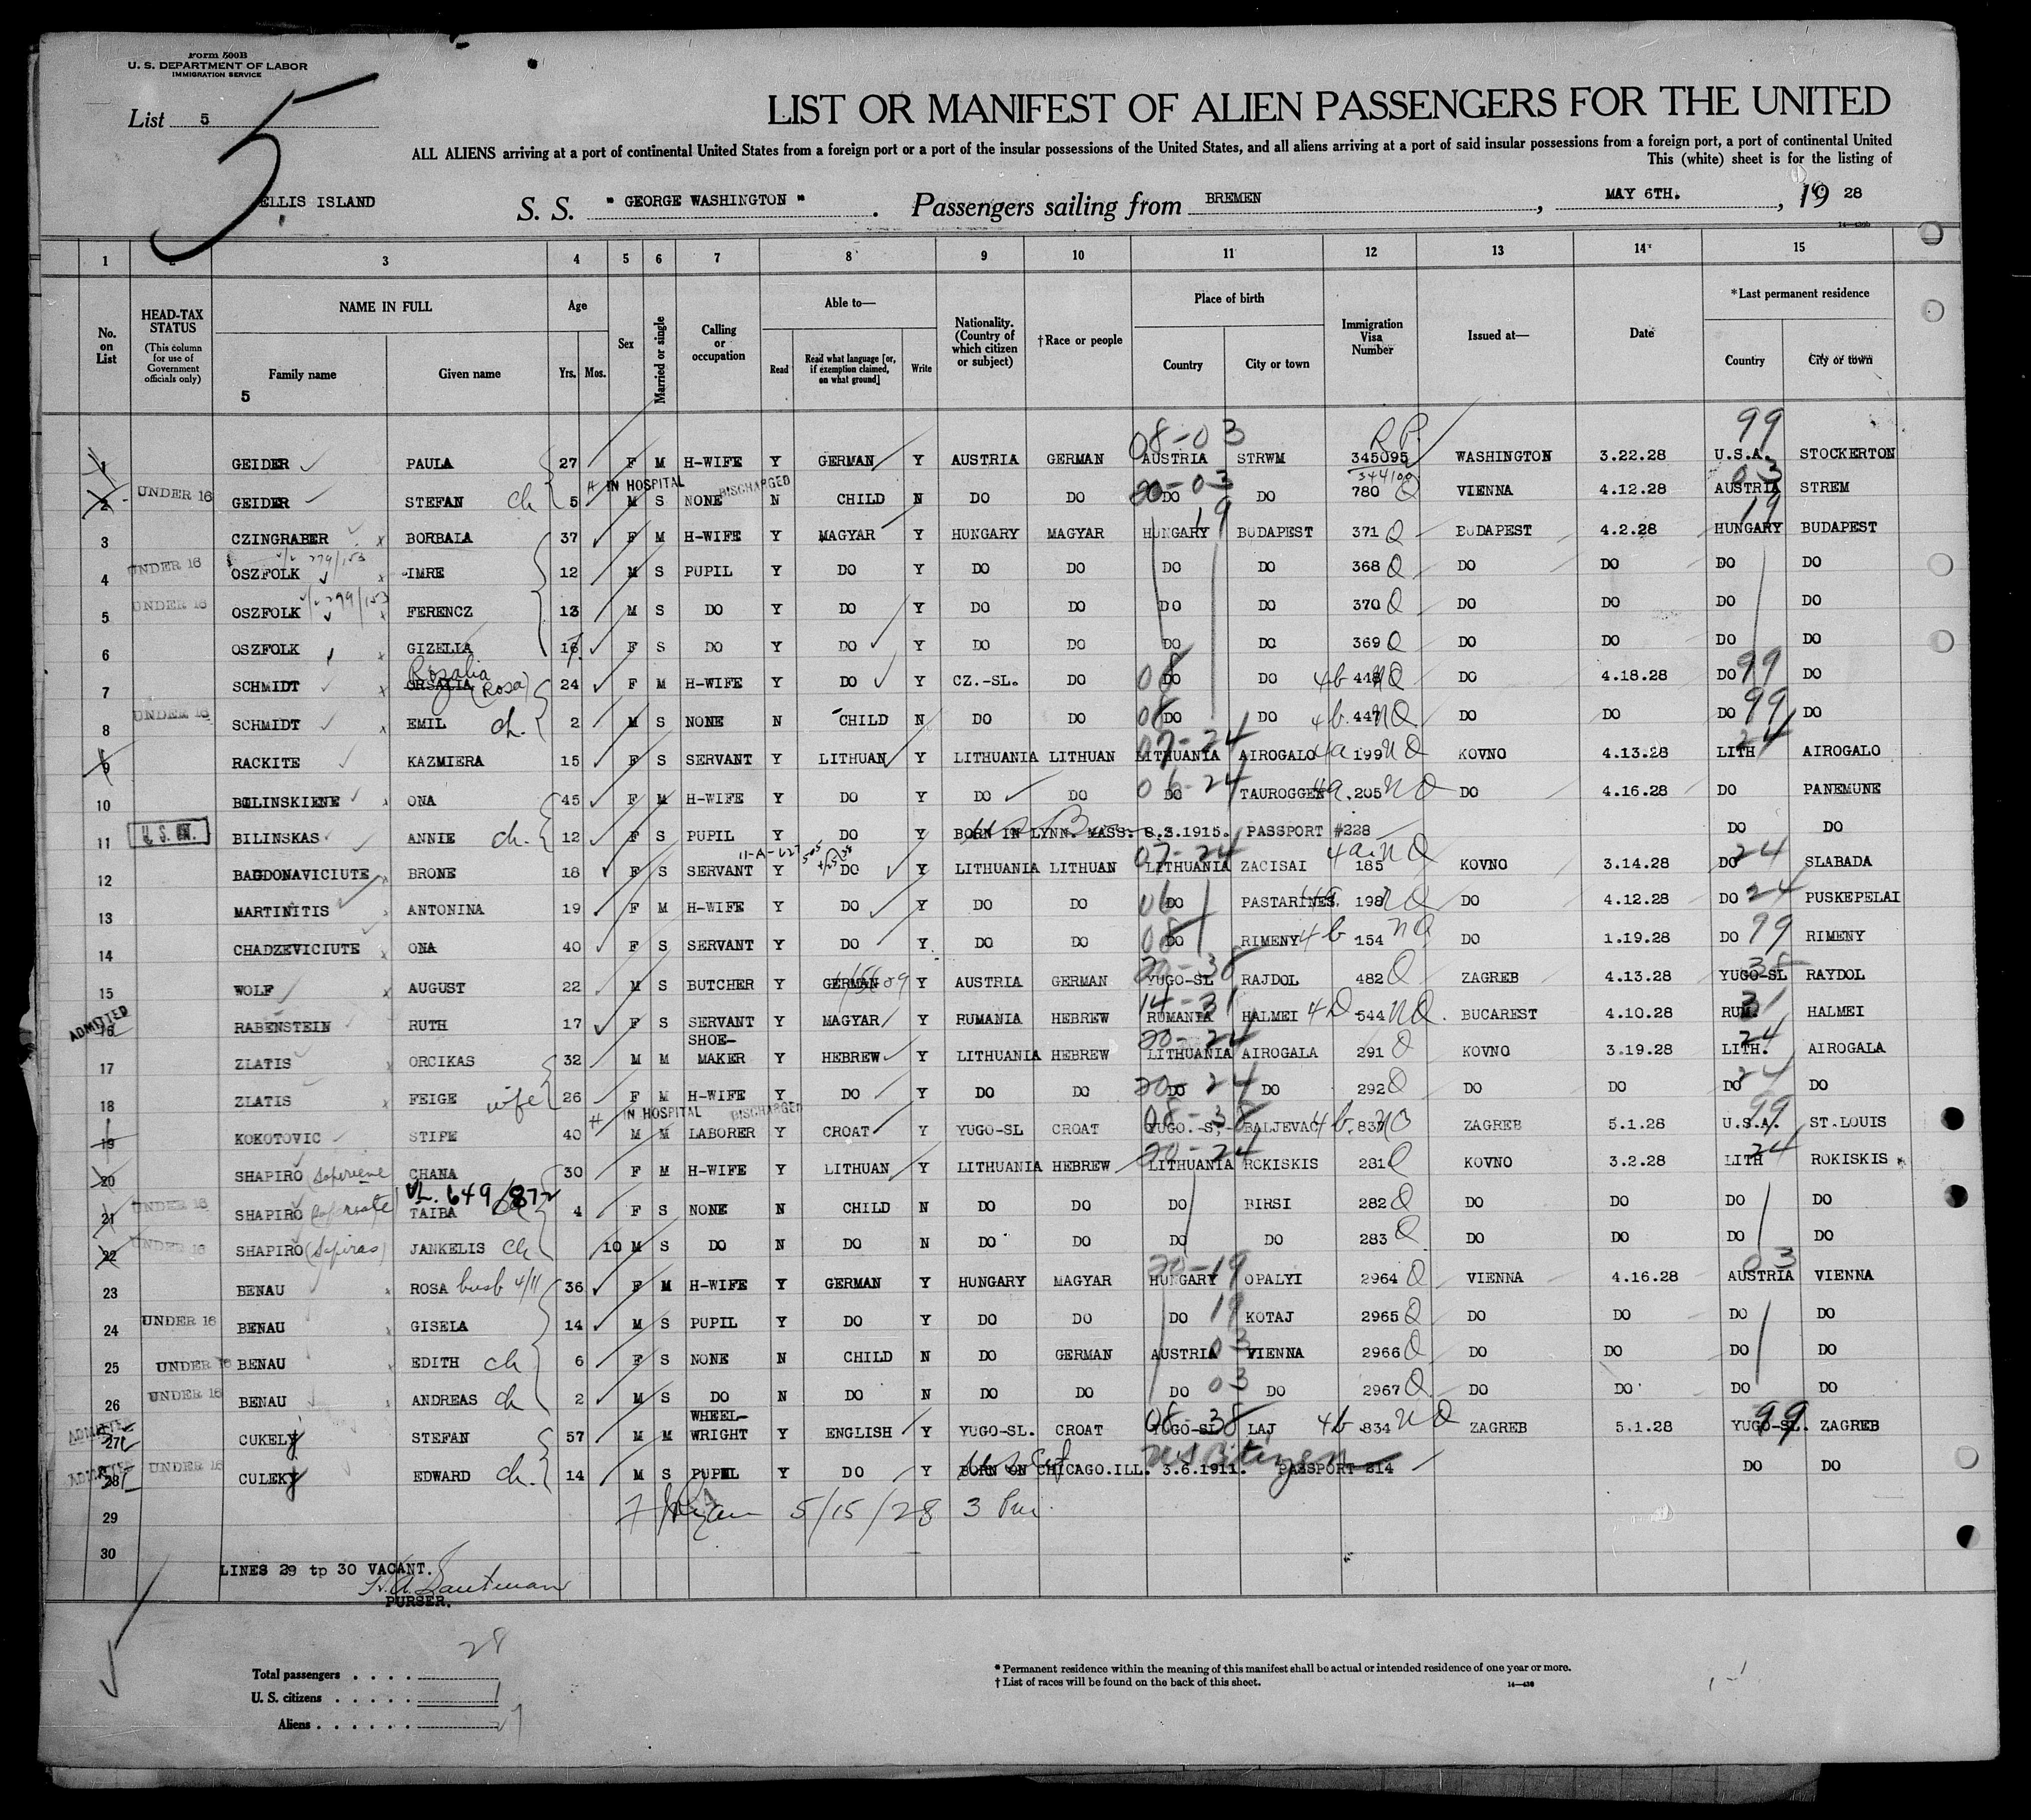 Form 500B
U. S. DEPARTMENT OF LABOR
IMMIGRATION SERVICE
List 5
5
LIST OR MANIFEST OF ALIEN PASSENGERS FOR THE UNITED
ALL ALIENS arriving at a port of continental United States from a foreign port or a part of the insular possessions of the United States, and all aliens arriving at a port of said insular possessions from a foreign port, a port of continental United
This (white) sheet is for the listing of
ELLIS ISLAND S. S. " GEORGE WASHINGTON ". Passengers sailing from BREMEN, MAY 6TH., 19 28
1 2 3 4 5 6 7 8 9 10 11 12 13 14 15
No. on List HEAD-TAX STATUS (This column for use of Government officials only) NAME IN FULL Family name Given name Age Yrs. Mos. Sex Married or single Calling or occupation Able to— Read Read what language [or, if exemption claimed, on what ground] Write Nationality. (Country of which citizen or subject) †Race or people Place of birth Country City or town Immigration Visa Number Issued at— Date *Last permanent residence Country City or town
5
08-03 R.P. 99
1 GEIDER PAULA 27 F M H-WIFE Y GERMAN Y AUSTRIA GERMAN AUSTRIA STRWM 345095 WASHINGTON 3.22.28 U.S.A. STOCKERTON
IN HOSPITAL DISCHARGED 20-03 344100 03
2 UNDER 16 GEIDER STEFAN ch 5 M S NONE N CHILD N DO DO DO DO 780 Q VIENNA 4.12.28 AUSTRIA STREM
3 CZINGRABER BORBALA 37 F M H-WIFE Y MAGYAR Y HUNGARY MAGYAR HUNGARY 19 BUDAPEST 371 Q BUDAPEST 4.2.28 HUNGARY 19 BUDAPEST
4 UNDER 16 OSZFOLK IMRE 12 M S PUPIL Y DO Y DO DO DO DO 368 Q DO DO DO DO
5 UNDER 16 OSZFOLK FERENCZ 13 M S DO Y DO Y DO DO DO DO 370 Q DO DO DO DO
6 OSZFOLK GIZELLA 16 F S DO Y DO Y DO DO DO DO 369 Q DO DO DO DO
Rozalia
7 SCHMIDT ORSALIA (Rosa) 24 F M H-WIFE Y DO Y CZ.-SL. DO 08 DO DO 4b 448 NQ DO 4.18.28 DO 99 DO
8 UNDER 16 SCHMIDT EMIL ch. 2 M S NONE N CHILD N DO DO 08 DO DO 4b. 447 NQ DO DO DO 99 DO
07-24
9 RACKITE KAZMIERA 15 F S SERVANT Y LITHUAN Y LITHUANIA LITHUAN LITHUANIA AIROGALO 4a 199 NQ KOVNO 4.13.28 LITH 24 AIROGALO
06-24
10 BOLINSKIENE ONA 45 F M H-WIFE Y DO Y DO DO DO TAUROGGEN 4a. 205 NQ DO 4.16.28 DO PANEMUNE
11 U.S. BILINSKAS ANNIE ch. 12 F S PUPIL Y DO Y BORN IN LYNN. MASS. 8.3.1915. PASSPORT #228 DO DO
07-24
12 BAGDONAVICIUTE BRONE 18 F S SERVANT Y DO Y LITHUANIA LITHUAN LITHUANIA ZACISAI 4a. 185 NQ KOVNO 3.14.28 DO 24 SLABADA
13 MARTINITIS ANTONINA 19 F M H-WIFE Y DO Y DO DO 06 DO PASTARINES 4a 198 NQ DO 4.12.28 DO 24 PUSKEPELAI
14 CHADZEVICIUTE ONA 40 F S SERVANT Y DO Y DO DO 08 DO RIMENY 4b 154 NQ DO 1.19.28 DO 99 RIMENY
20-38
15 WOLF AUGUST 22 M S BUTCHER Y GERMAN Y AUSTRIA GERMAN YUGO-SL RAJDOL 482 Q ZAGREB 4.13.28 YUGO-SL 38 RAYDOL
14-31
16 ADMITTED RABENSTEIN RUTH 17 F S SERVANT Y MAGYAR Y RUMANIA HEBREW RUMANIA HALMEI 4D 544 NQ. BUCAREST 4.10.28 RUM. 31 HALMEI
20-24
17 ZLATIS ORCIKAS 32 M M SHOE-MAKER Y HEBREW Y LITHUANIA HEBREW LITHUANIA AIROGALA 291 Q KOVNO 3.19.28 LITH. 24 AIROGALA
18 ZLATIS FEIGE wife 26 F M H-WIFE Y DO Y DO DO 20-24 DO DO 292 Q DO DO DO 24 DO
IN HOSPITAL DISCHARGED 08-38
19 KOKOTOVIC STIPE 40 M M LABORER Y CROAT Y YUGO-SL CROAT YUGO.-S, BALJEVAC 4b. 837 NQ ZAGREB 5.1.28 U.S.A. 99 ST.LOUIS
20-24
20 SHAPIRO (Saperiene CHANA 30 F M H-WIFE Y LITHUAN Y LITHUANIA HEBREW LITHUANIA ROKISKIS 281 Q KOVNO 3.2.28 LITH 24 ROKISKIS
VL. 649/872
21 UNDER 16 SHAPIRO TAIBA 4 F S NONE N CHILD N DO DO DO BIRSI 282 Q DO DO DO DO
22 UNDER 16 SHAPIRO (Sapiras) JANKELIS ch 10 M S DO N DO N DO DO DO DO 283 Q DO DO DO DO
20-19
23 BENAU ROSA husb 4/11 36 F M H-WIFE Y GERMAN Y HUNGARY MAGYAR HUNGARY OPALYI 2964 Q VIENNA 4.16.28 AUSTRIA 03 VIENNA
24 UNDER 16 BENAU GISELA 14 M S PUPIL Y DO Y DO DO DO 19 KOTAJ 2965 Q DO DO DO DO
25 UNDER 16 BENAU EDITH ch 6 F S NONE N CHILD N DO GERMAN AUSTRIA 03 VIENNA 2966 Q DO DO DO DO
26 UNDER 16 BENAU ANDREAS ch 2 M S DO N DO N DO DO DO 03 DO 2967 Q DO DO DO DO
08-38
27 ADMITTED CUKELY STEFAN 57 M M WHEEL-WRIGHT Y ENGLISH Y YUGO-SL. CROAT YUGO-SL LAJ 4b 834 NQ ZAGREB 5.1.28 YUGO-SL. 99 ZAGREB
28 ADMITTED UNDER 16 CULEKY EDWARD ch. 14 M S PUPIL Y DO Y BORN ON CHICAGO.ILL. 3.6.1911. US Citizen PASSPORT 214 DO DO
29 5/15/28 3 Pm.
30
LINES 29 tp 30 VACANT.
PURSER.
28
Total passengers . . . .
U. S. citizens . . . . . 1
Aliens . . . . . . 27
* Permanent residence within the meaning of this manifest shall be actual or intended residence of one year or more.
† List of races will be found on the back of this sheet.